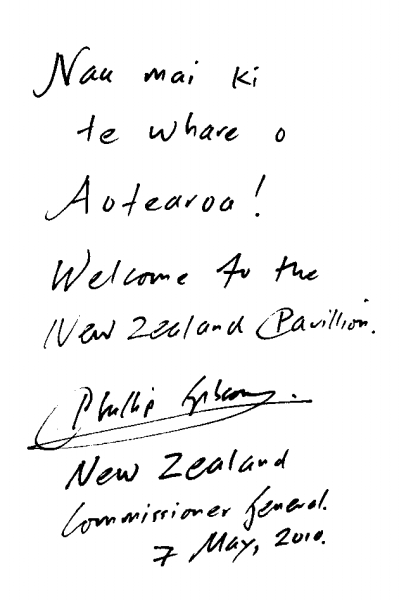 Nau mai ki
te whare o
Aotearoa!
Welcome to the
New Zealand Pavillion.
Phillip Gibson.
New Zealand
Commissioner General.
7 May, 2010.